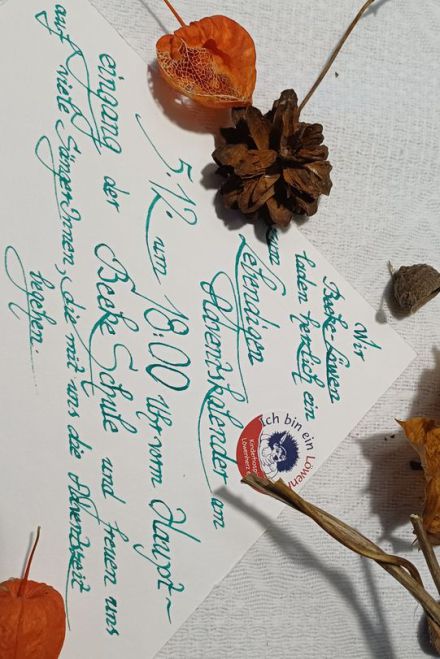 Wir
Beeke-Löwen
laden herzlich ein
zum
Lebendigen
Adventskalender am
5.12. um 18:00 Uhr vom Haupt-
eingang der Beeke Schule und freuen uns
auf viele SängerInnen, die mit uns die Adventszeit
begehen.
Ich bin ein Löwen
Kinderhosp
Löwenherz e.